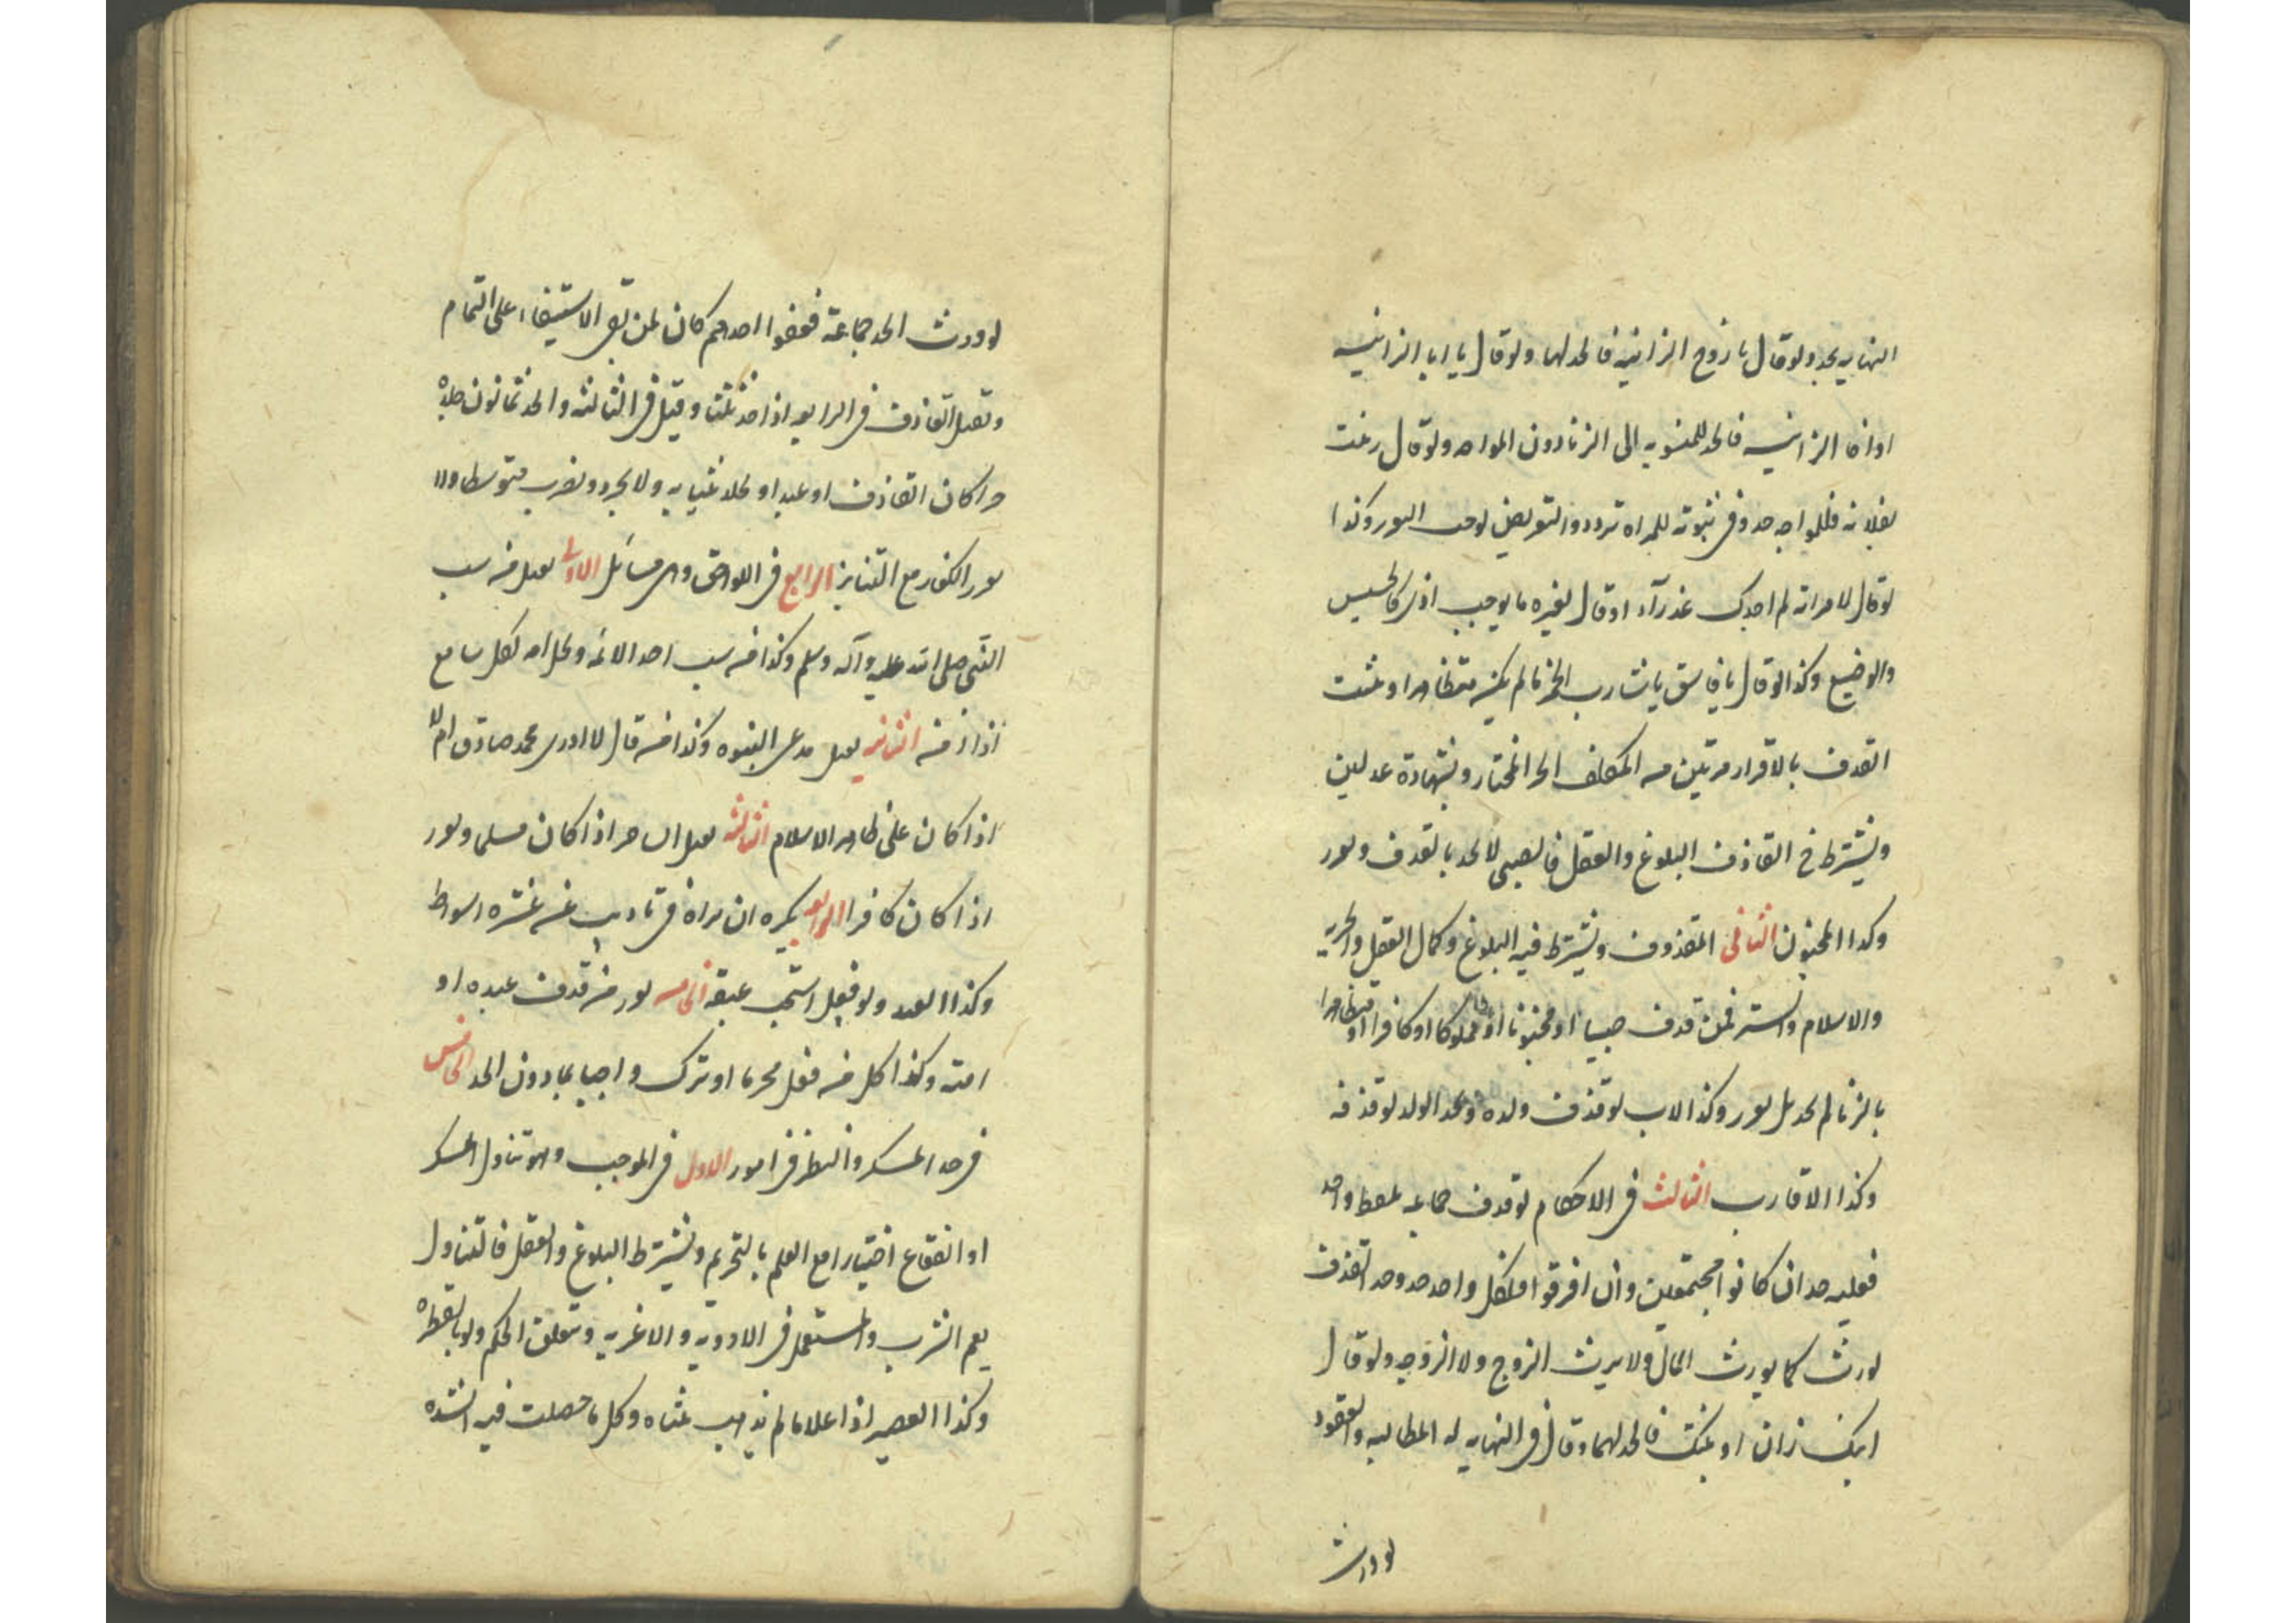 النهايه يحد ولو قال يا زوج الزانيه فالحد لها ولو قال يا ابا الزانيه
او اخا الزانيه فالحد للمنسوبه الى الزنا دون المواجه ولو قال زنيت
بفلانه فللمواجه حد وفى ثبوته للمراه تردد والتعريض يوجب التعزير وكذا
لو قال لامراته لم اجدك عذرآء او قال لغيره ما يوجب اذى كالخسيس
والوضيع وكذا لو قال يا فاسق يا شارب الخمر ما لم يكن متظاهرا ويثبت
القذف بالاقرار مرتين من المكلف الحر المختار وبشهادة عدلين
ويشترط فى القاذف البلوغ والعقل فالصبى لا يحد بالقذف ويعزر
وكذا المجنون الثانى المقذوف ويشترط فيه البلوغ وكمال العقل والحريه
والاسلام والستر فمن قذف صبيا او مجنونا او مملوكا او كافرا او متظاهرا
بالزنا لم يحد بل يعزر وكذا الاب لو قذف ولده ويحد الولد لو قذفه
وكذا الاقارب الثالث فى الاحكام لو قذف جماعه بلفظ واحد
فعليه حد ان كانوا مجتمعين وان افرقوا فلكل واحد حد وحد القذف
يورث كما يورث المال ولا يرث الزوج ولا الزوجه ولو قال
ابنك زان او بنتك فالحد لهما وقال فى النهايه له المطالبه والعفو
لو ورث
لو ورث الحد جماعة فعفوا احدهم كان لمن بقى الاستيفاء على التمام
ويقتل القاذف فى الرابعه اذا حد ثلثا وقيل فى الثالثه والحد ثمانون جلدة
حرا كان القاذف او عبدا ويجلد بثيابه ولا يجرد ويضرب متوسطا ولا
يعزر الكفار مع التنابز الرابع فى اللواحق وهى مسائل الاولى يقتل من سب
النبى صلى الله عليه وآله وسلم وكذا من سب احد الائمه ويحل دمه لكل سامع
اذا امن الثانيه يقتل مدعى النبوه وكذا من قال لا ادرى محمد صادق ام لا
اذا كان على ظاهر الاسلام الثالثه يقتل الساحر اذا كان مسلما ويعزر
اذا كان كافرا الرابعه يكره ان يزاد فى تاديب من عشره اسواط
وكذا العبد ولو فعل استحب عتقه الخامسه يعزر من قذف عبده او
امته وكذا كل من فعل محرما او ترك واجبا بما دون الحد الخامس
فى حد المسكر والنظر فى امور الاول فى الموجب وهو تناول المسكر
او الفقاع اختيارا مع العلم بالتحريم ويشترط البلوغ والعقل فالتناول
يعم الشرب والمستعمل فى الادوية والاغذيه ويتعلق الحكم ولو بالقطرة
وكذا العصير اذا غلا ما لم يذهب ثلثاه وكل ما حصلت فيه الشده